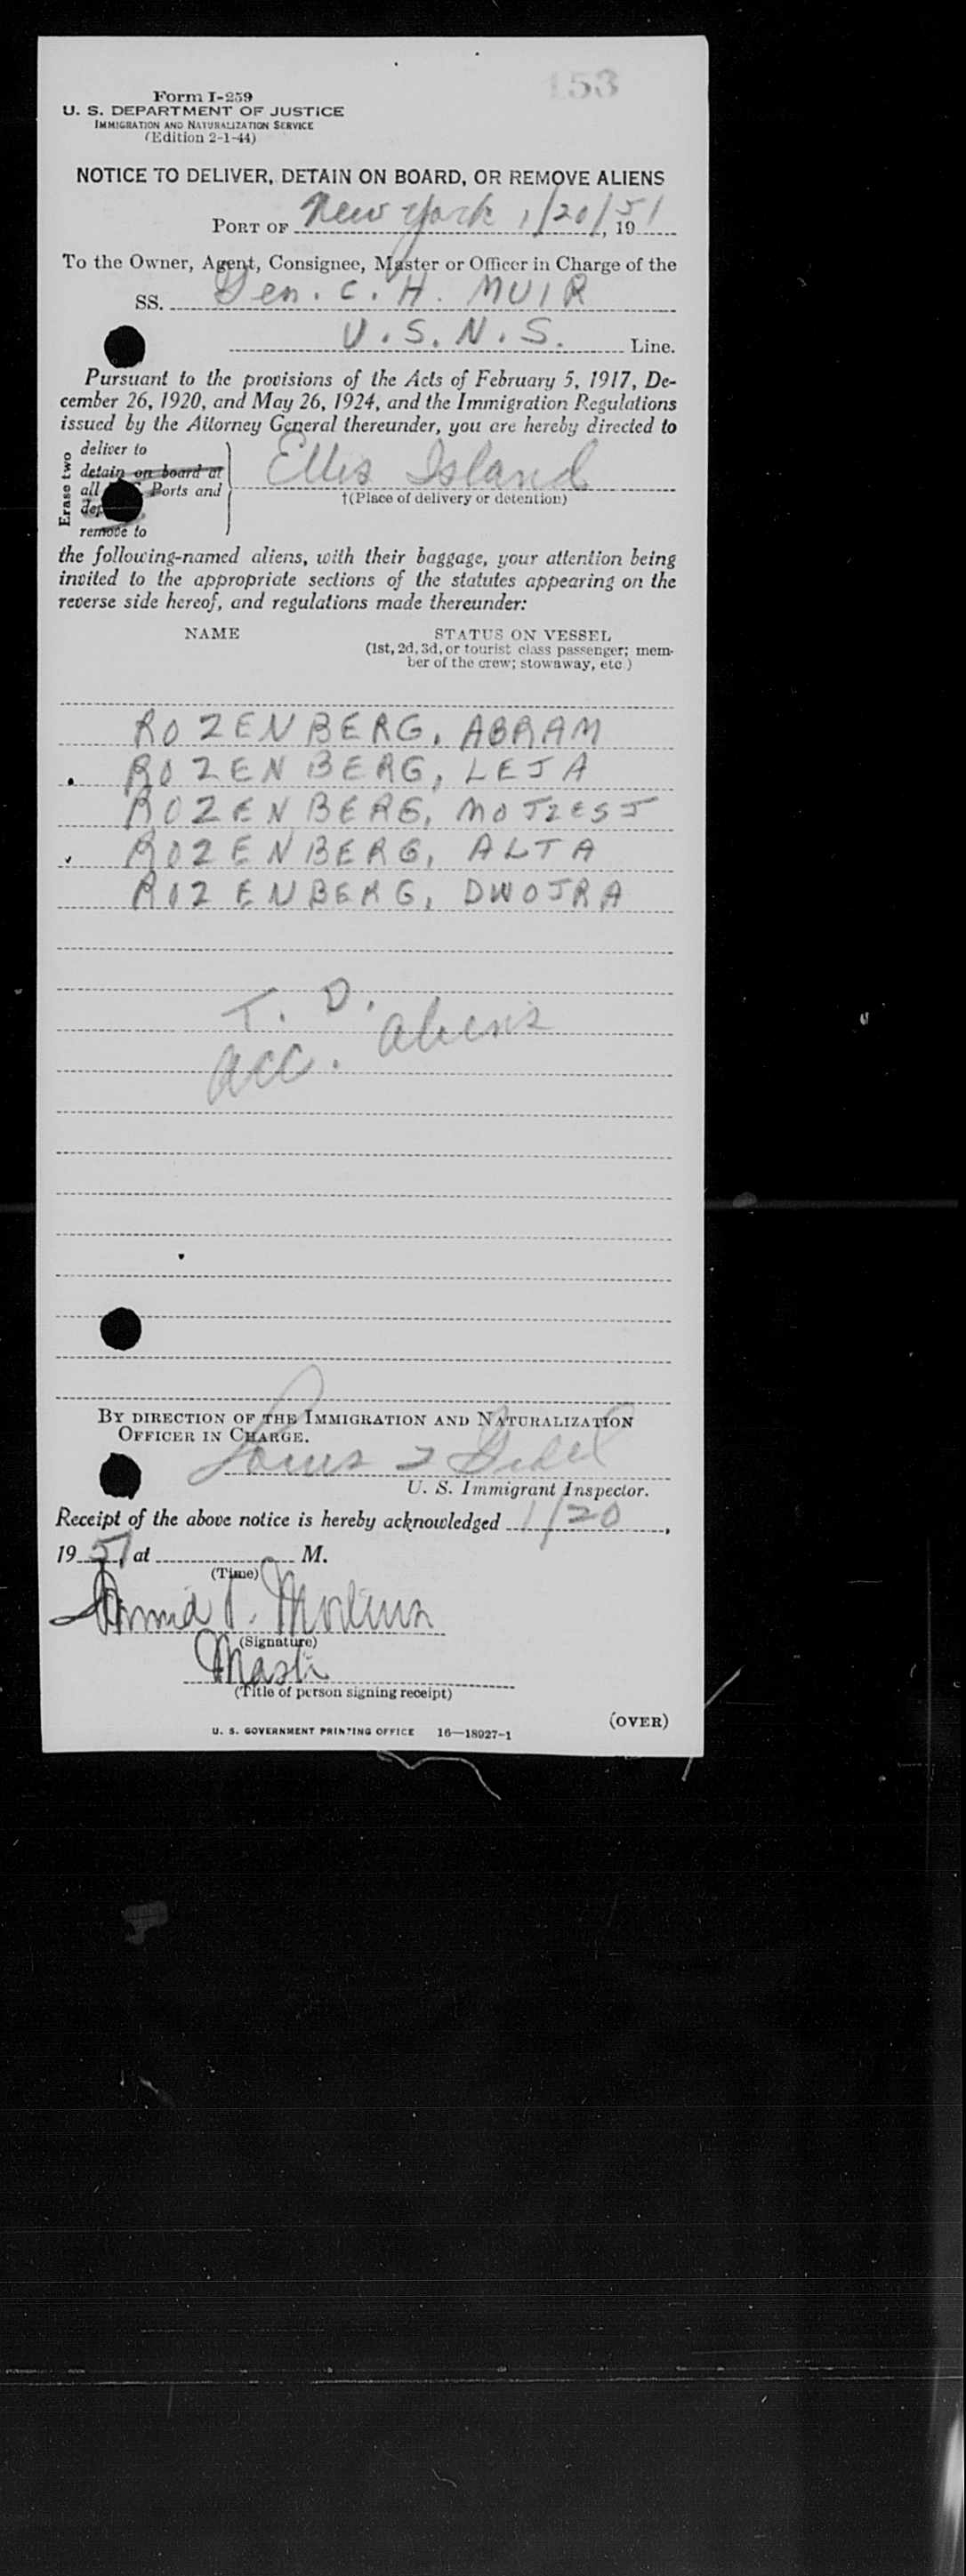 153
Form I-259
U. S. DEPARTMENT OF JUSTICE
IMMIGRATION AND NATURALIZATION SERVICE
(Edition 2-1-44)
NOTICE TO DELIVER, DETAIN ON BOARD, OR REMOVE ALIENS
PORT OF New York 1/20/, 1951
To the Owner, Agent, Consignee, Master or Officer in Charge of the
SS. Gen. C. H. MUIR
U.S.N.S. Line.
Pursuant to the provisions of the Acts of February 5, 1917, De-
cember 26, 1920, and May 26, 1924, and the Immigration Regulations
issued by the Attorney General thereunder, you are hereby directed to
Erase two
deliver to
detain on board at
all Ports and
remove to
Ellis Island
†(Place of delivery or detention)
the following-named aliens, with their baggage, your attention being
invited to the appropriate sections of the statutes appearing on the
reverse side hereof, and regulations made thereunder:
NAME STATUS ON VESSEL
(1st, 2d, 3d, or tourist class passenger; mem-
ber of the crew; stowaway, etc.)
ROZENBERG, ABRAM
ROZENBERG, LEJA
ROZENBERG, MOJZESJ
ROZENBERG, ALTA
ROZENBERG, DWOJRA
T. D.
acc. aliens
BY DIRECTION OF THE IMMIGRATION AND NATURALIZATION
OFFICER IN CHARGE.
Louis
U. S. Immigrant Inspector.
Receipt of the above notice is hereby acknowledged 1/20,
1951, at M.
(Time)
(Signature)
(Title of person signing receipt)
U. S. GOVERNMENT PRINTING OFFICE 16—18027-1
(OVER)